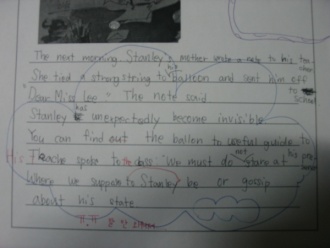 The next morning Stanley's mother wrote a note to his teacher
She tied a strong string to his balloon and sent him off to school
"Dear Miss Lee" The note said
Stanley has unexpectedly become invisible
You can find out the ballon to useful guide to
His Teache spoke to the class: We must do not stare at his
Where we suppose to Stanley be or gossip
about his state